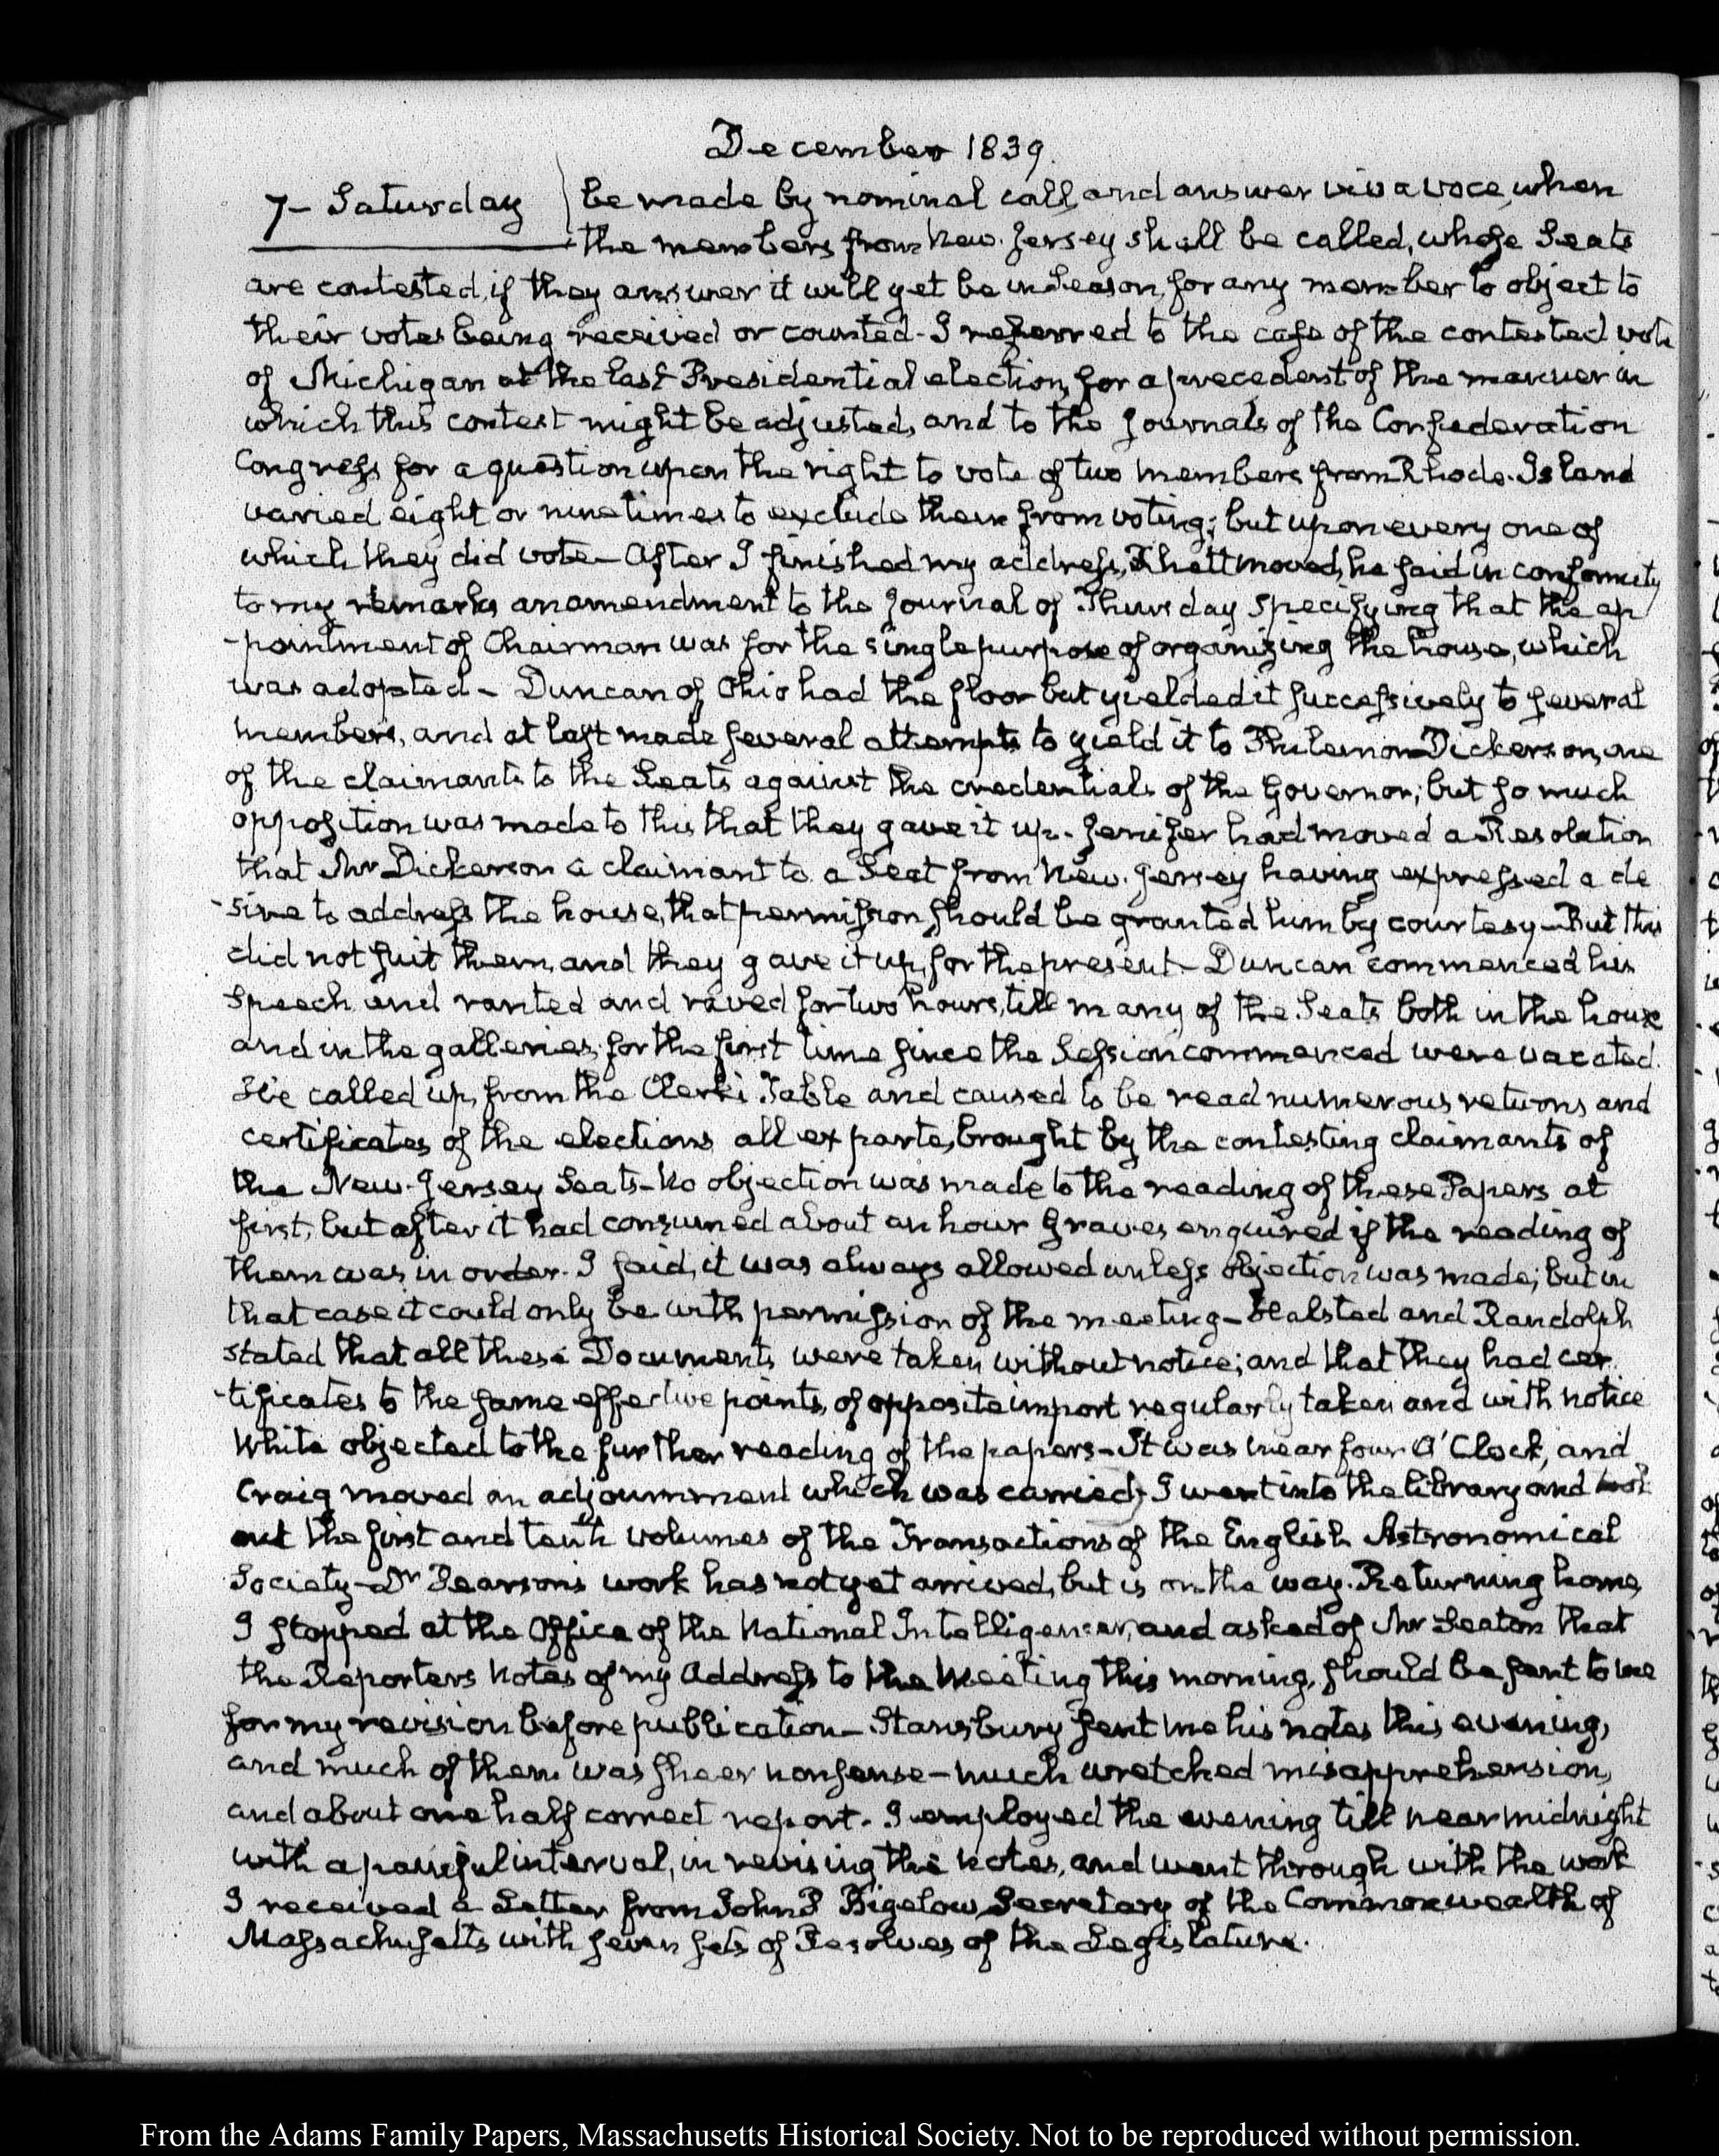 December 1839.
7– Saturday } be made by nominal call, and answer viva voce, when
the members from New-Jersey shall be called, whose Seats
are contested, if they answer it will yet be in Season, for any member to object to
their votes being received or counted– I referred to the case of the contested vote
of Michigan at the last Presidential election, for a precedent of the manner in
which this contest might be adjusted, and to the Journals of the Confederation
Congress for a question upon the right to vote of two members from Rhode-Island
varied eight or nine times to exclude them from voting; but upon every one of
which they did vote– After I finished my address, Rhett moved, he said in conformity
to my remarks an amendment to the Journal of Thursday specifying that the ap
-pointment of Chairman was for the single purpose of organizing the house, which
was adopted– Duncan of Ohio had the floor but yielded it successively to several
members, and at last made several attempts to yield it to Philemon Dickerson, one
of the claimants to the Seats against the credentials of the Governor; but so much
opposition was made to this that they gave it up– Jenifer had moved a Resolution
that Mr Dickerson a claimant to a Seat from New-Jersey having expressed a de
-sire to address the house, that permission should be granted him by courtesy– But this
did not suit them, and they gave it up, for the present– Duncan commenced his
speech and ranted and raved for two hours, till many of the Seats both in the house
and in the galleries, for the first time since the Session commenced were vacated.
He called up, from the Clerk's Table and caused to be read numerous returns and
certificates of the elections all ex parte, brought by the contesting claimants of
the New-Jersey Seats– No objection was made to the reading of these Papers at
first, but after it had consumed about an hour Graves enquired if the reading of
them was in order– I said, it was always allowed unless objection was made; but in
that case it could only be with permission of the meeting– Halsted and Randolph
stated that all these Documents were taken without notice; and that they had cer
-tificates to the same effective points, of opposite import regularly taken and with notice
White objected to the further reading of the papers– It was near four O'Clock, and
Craig moved an adjournment which was carried, I went into the library and took
out the first and tenth volumes of the Transactions of the English Astronomical
Society– Dr Pearson's work has not yet arrived, but is on the way. Returning home,
I stopped at the Office of the National Intelligencer, and asked of Mr Seaton that
the Reporters Notes of my Address to the Meeting this morning, should be sent to me
for my revision before publication– Stansbury sent me his notes this evening,
and much of them was sheer nonsense– much wretched misapprehension,
and about one half correct report. I employed the evening till near midnight
with a painful interval, in revising the notes, and went through with the work
I received a Letter from John P Bigelow, Secretary of the Commonwealth of
Massachusetts with seven sets of Resolves of the Legislature.
From the Adams Family Papers, Massachusetts Historical Society. Not to be reproduced without permission.